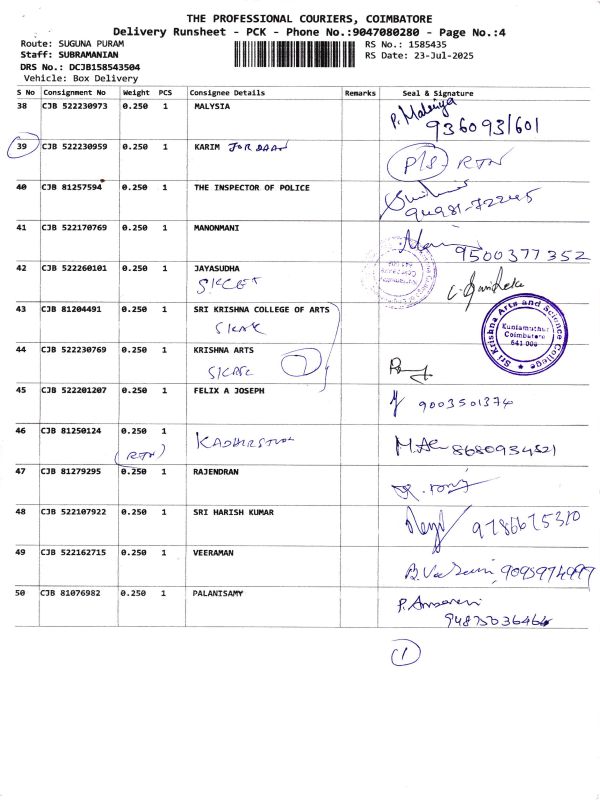 THE PROFESSIONAL COURIERS, COIMBATORE
Delivery Runsheet - PCK - Phone No.:9047080280 - Page No.:4
Route: SUGUNA PURAM RS No.: 1585435
Staff: SUBRAMANIAN RS Date: 23-Jul-2025
DRS No.: DCJB158543504
Vehicle: Box Delivery
S No Consignment No Weight PCS Consignee Details Remarks Seal & Signature
38 CJB 522230973 0.250 1 MALYSIA
9360931601
39 CJB 522230959 0.250 1 KARIM JORDAAN
P/S RTN
40 CJB 81257594 0.250 1 THE INSPECTOR OF POLICE
41 CJB 522170769 0.250 1 MANONMANI
9500377352
42 CJB 522260101 0.250 1 JAYASUDHA
SKCET
43 CJB 81204491 0.250 1 SRI KRISHNA COLLEGE OF ARTS
Sri Krishna Arts and Science College
Kuniamuthur
Coimbatore
641 008
44 CJB 522230769 0.250 1 KRISHNA ARTS
SKASC
45 CJB 522201207 0.250 1 FELIX A JOSEPH
9003501374
46 CJB 81250124 0.250 1
(RTN)
8680934521
47 CJB 81279295 0.250 1 RAJENDRAN
48 CJB 522107922 0.250 1 SRI HARISH KUMAR
9786675310
49 CJB 522162715 0.250 1 VEERAMAN
50 CJB 81076982 0.250 1 PALANISAMY
1